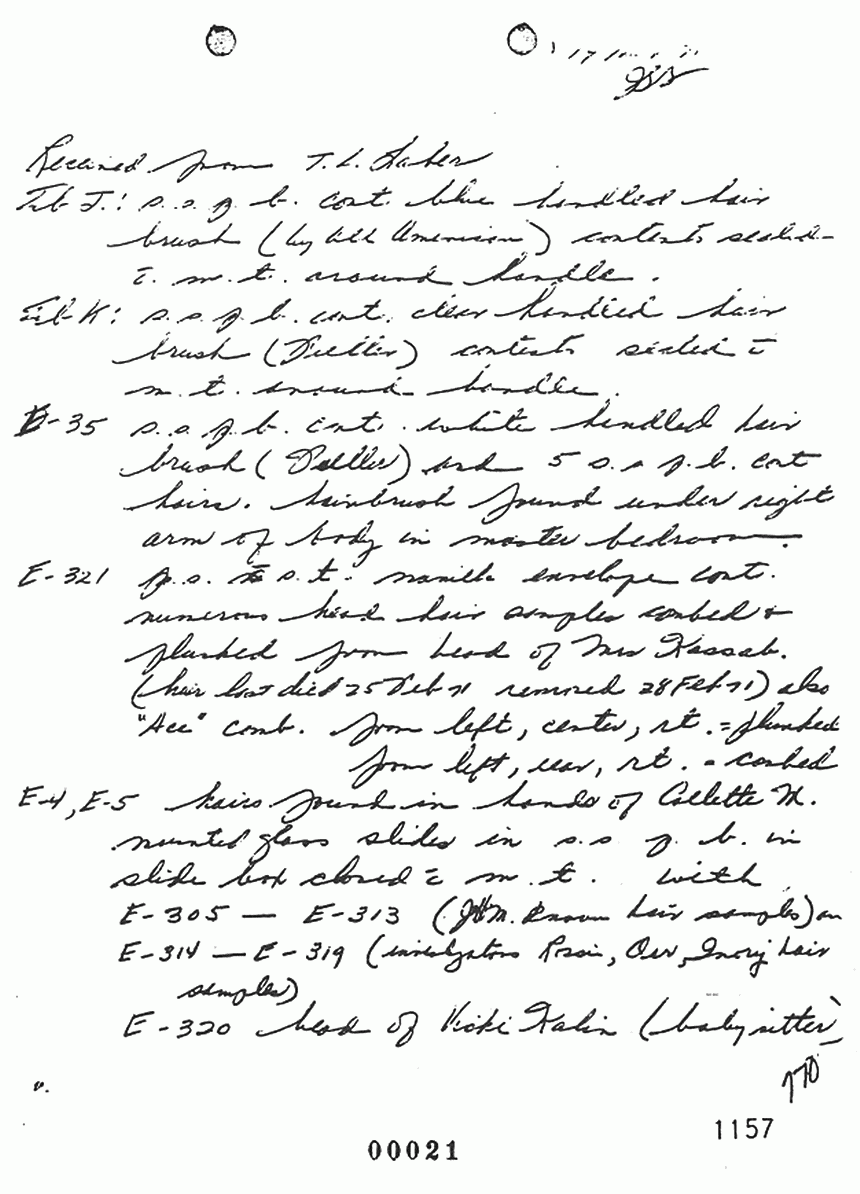 17
Received from T. L.
J.: s.s. p. b. cont. blue handled hair
brush (by All American) contents sealed
c̄ m.t. around handle.
K: s.s. p. b. cont. clear handled hair
brush (Fuller) contents sealed c̄
m.t. around handle.
D-35 s.s. p. b. cont. white handled hair
brush (Fuller) and 5 s.s p. b. cont
hairs. hairbrush found under right
arm of body in master bedroom.
E-321 p.s. s.t. manilla envelope cont.
numerous head hair samples combed &
plucked from head of Mrs Kassab.
(hair last died 25 Feb 71 removed 28 Feb 71) also
"Ace" comb. from left, center, rt. = plucked
from left, rear, rt. = combed
E-4, E-5 hairs found in hands of Collette M.
mounted glass slides in s.s p. b. in
slide box closed c̄ m.t. with
E-305 — E-313 (JM. known hair samples) an
E-314 — E-319 (investigators Rossi, Orr, Ivory hair
samples)
E-320 head of Vicki Kalin (babysitter)
770
1157
00021